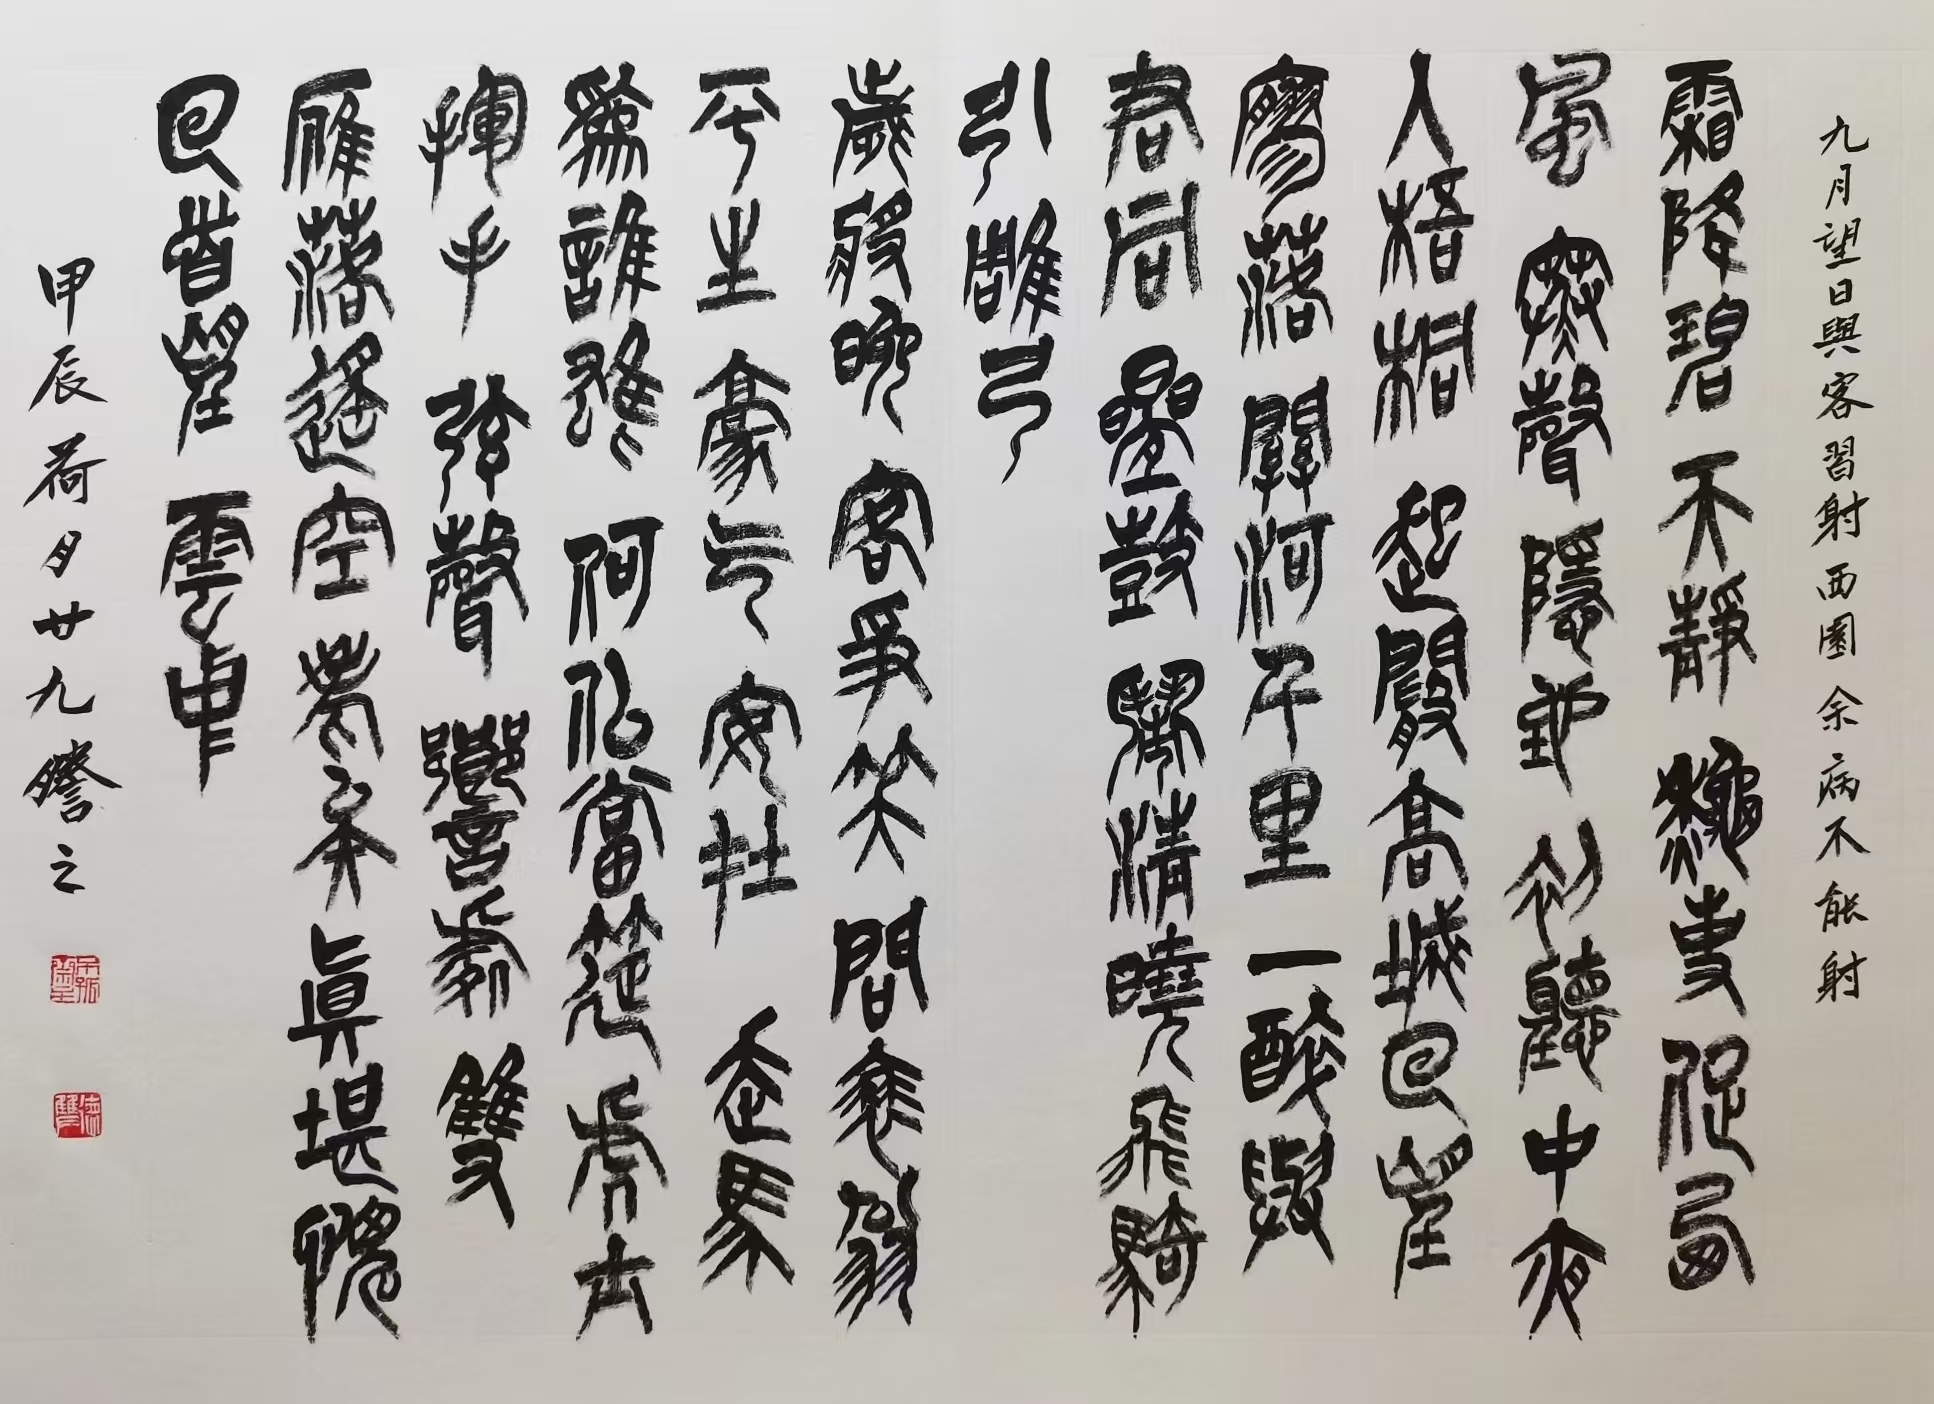 九月望日與客習射西園余病不能射
霜降碧天靜龝事促西
風寒聲隱地初聽中夜
入梧桐起瞰高城回望
寥落關河千里一醉與
君同疊鼓鬧清曉飛騎
引雕弓
歲將晚客爭笑問衰翁
平生豪气安在走馬
為誰雄何似當筵虎士
揮手弦聲響處雙
雁落遙空老矣真堪愧
回首望雲中
甲辰荷月廿九謄之